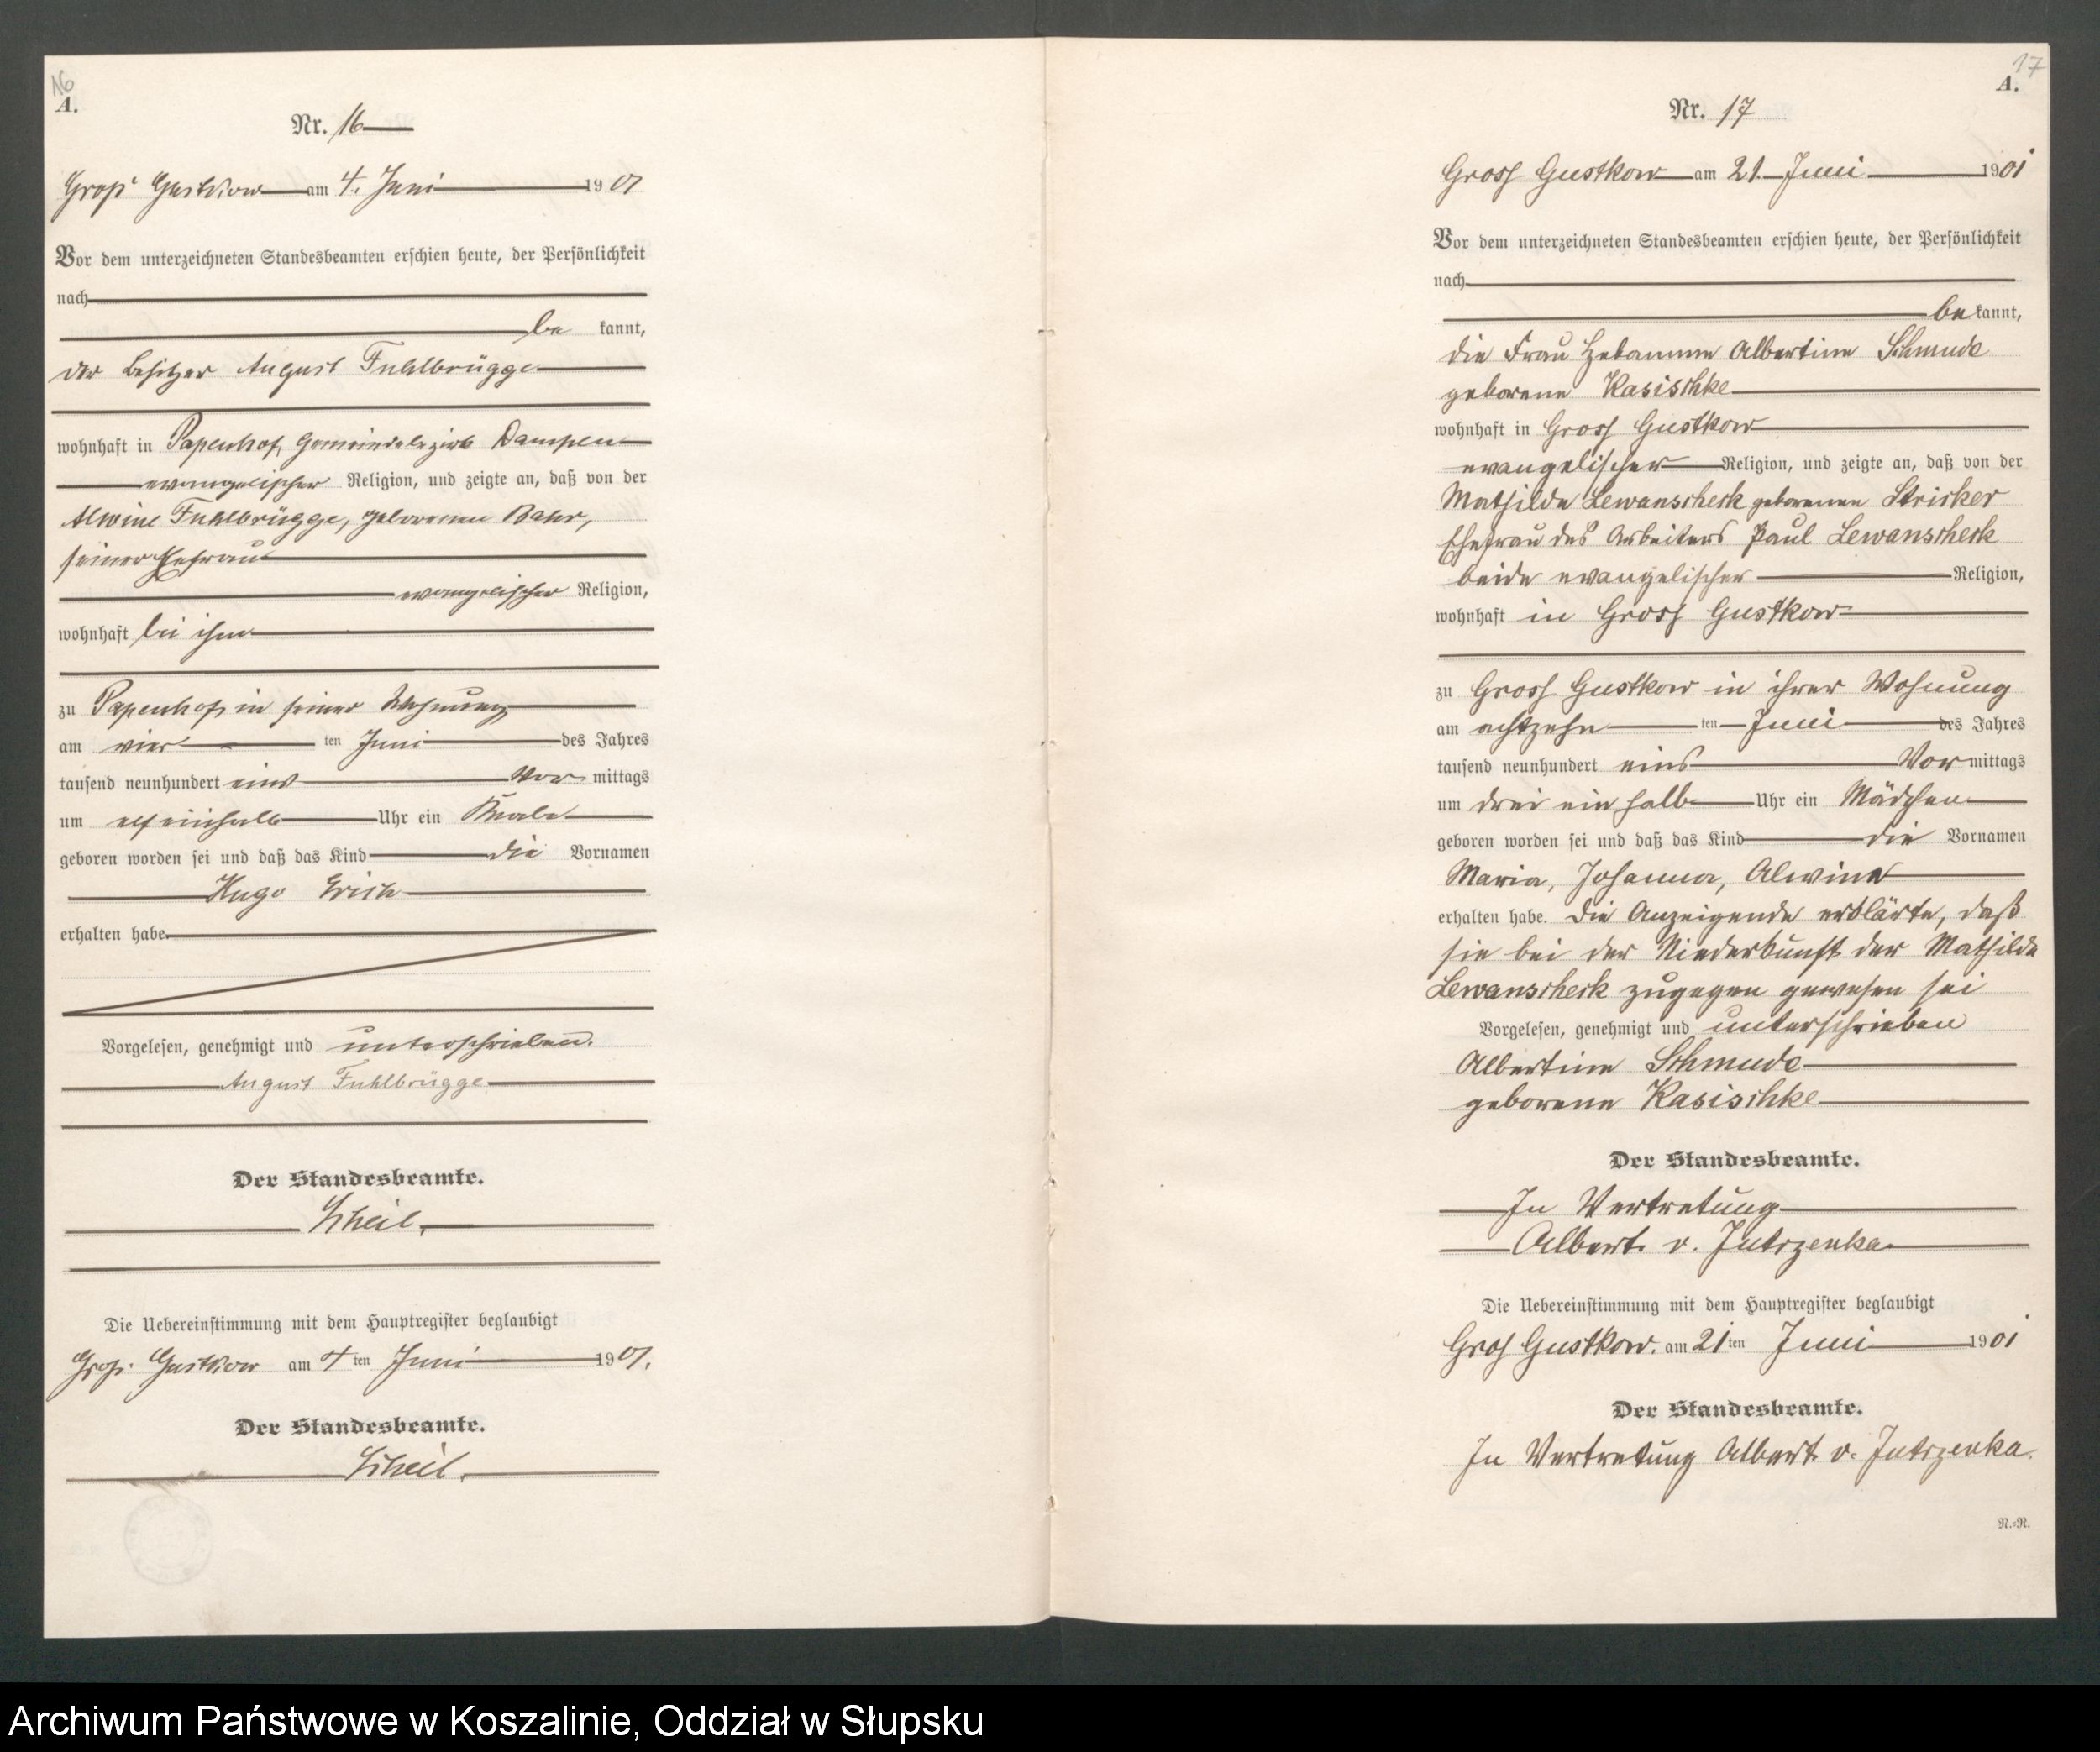 16
A.
Nr. 16
Groß Gustkow am 4. Juni 1901
Vor dem unterzeichneten Standesbeamten erschien heute, der Persönlichkeit
nach
be kannt,
der Besitzer August Fuhlbrügge
wohnhaft in Papenhof, Gemeindebezirk Dampen
evangelischer Religion, und zeigte an, daß von der
Alwine Fuhlbrügge, geborenen Bahr,
seiner Ehefrau
evangelischer Religion,
wohnhaft bei ihm
zu Papenhof, in seiner Wohnung
am vier ten Juni des Jahres
tausend neunhundert eins Vor mittags
um elf einhalb Uhr ein Knabe
geboren worden sei und daß das Kind die Vornamen
Hugo Erich
erhalten habe.
Vorgelesen, genehmigt und unterschrieben.
August Fuhlbrügge
Der Standesbeamte.
Scheil.
Die Uebereinstimmung mit dem Hauptregister beglaubigt
Groß Gustkow am 4 ten Juni 1901.
Der Standesbeamte.
Scheil.
17
A.
Nr. 17
Gross Gustkow am 21. Juni 1901
Vor dem unterzeichneten Standesbeamten erschien heute, der Persönlichkeit
nach
be kannt,
die Frau Hebamme Albertine Schmude
geborene Kasischke
wohnhaft in Gross Gustkow
evangelischer Religion, und zeigte an, daß von der
Mathilde Lewanscheck geborenen Stricker
Ehefrau des Arbeiters Paul Lewanscheck
beide evangelischer Religion,
wohnhaft in Gross Gustkow
zu Gross Gustkow in ihrer Wohnung
am achtzehn ten Juni des Jahres
tausend neunhundert eins Vor mittags
um drei ein halb Uhr ein Mädchen
geboren worden sei und daß das Kind die Vornamen
Maria, Johanna, Alwine
erhalten habe. Die Anzeigende erklärte, daß
sie bei der Niederkunft der Mathilde
Lewanscheck zugegen gewesen sei
Vorgelesen, genehmigt und unterschrieben
Albertine Schmude
geborene Kasischke
Der Standesbeamte.
In Vertretung
Albert v. Jutrzenka
Die Uebereinstimmung mit dem Hauptregister beglaubigt
Gros Gustkow. am 21 ten Juni 1901
Der Standesbeamte.
In Vertretung Albert v. Jutrzenka.
R.=R.
Archiwum Państwowe w Koszalinie, Oddział w Słupsku